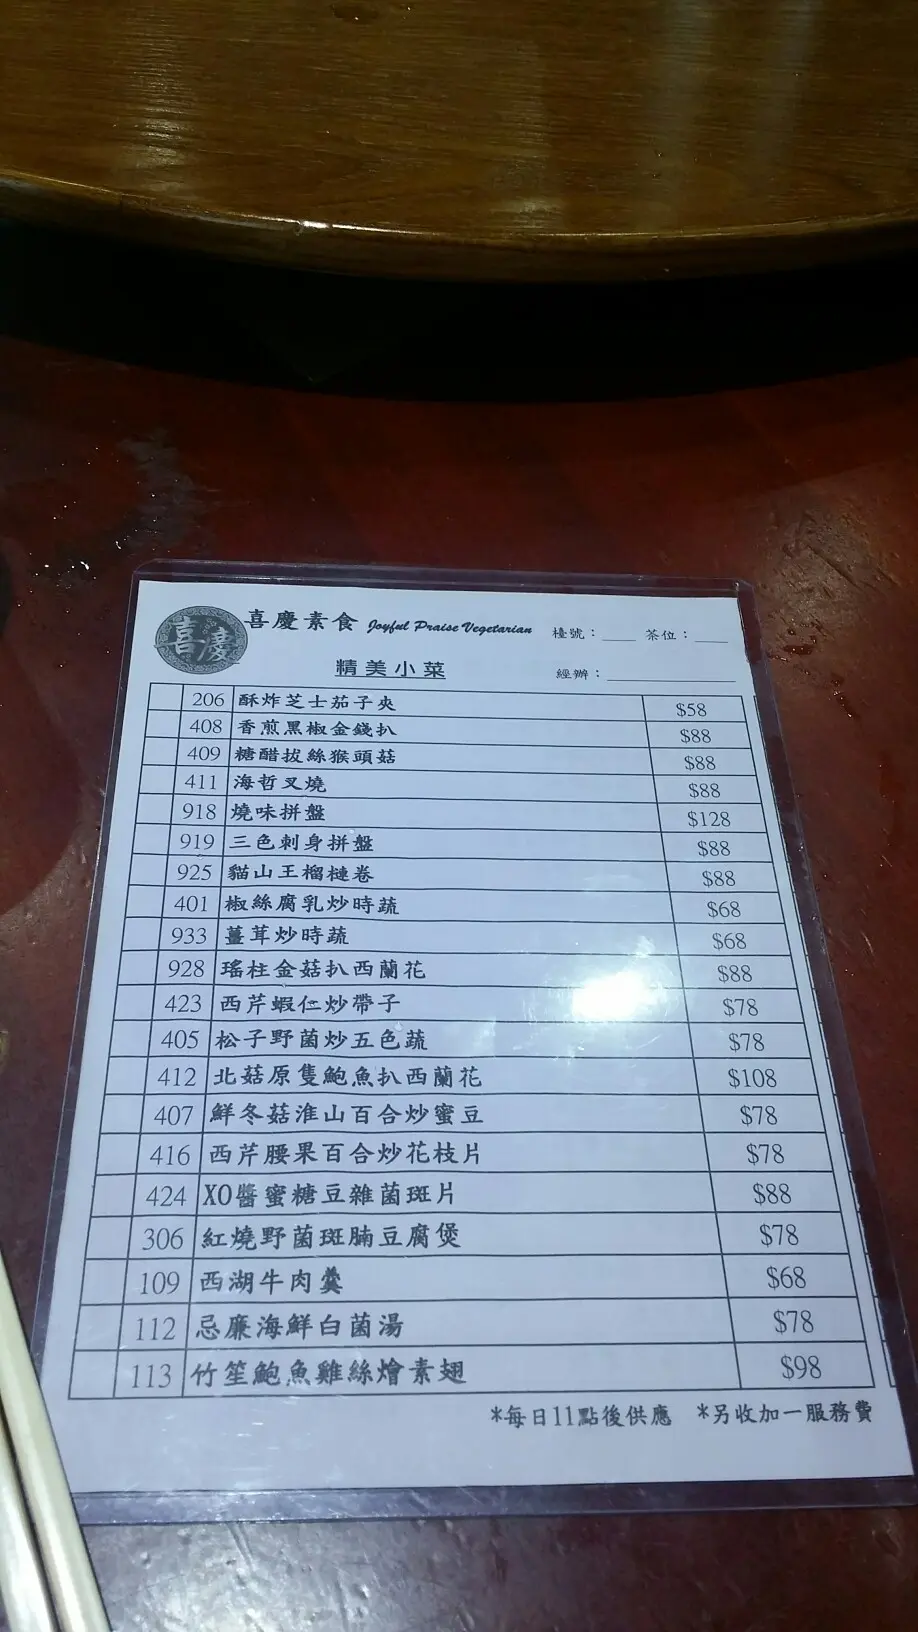 喜慶
喜慶素食 Joyful Praise Vegetarian 檯號：____ 茶位：____
精美小菜 經辦：____________
206 酥炸芝士茄子夾 $58
408 香煎黑椒金錢扒 $88
409 糖醋拔絲猴頭菇 $88
411 海哲叉燒 $88
918 燒味拼盤 $128
919 三色刺身拼盤 $88
925 貓山王榴槤卷 $88
401 椒絲腐乳炒時蔬 $68
933 薑茸炒時蔬 $68
928 瑤柱金菇扒西蘭花 $88
423 西芹蝦仁炒帶子 $78
405 松子野菌炒五色蔬 $78
412 北菇原隻鮑魚扒西蘭花 $108
407 鮮冬菇淮山百合炒蜜豆 $78
416 西芹腰果百合炒花枝片 $78
424 XO醬蜜糖豆雜菌斑片 $88
306 紅燒野菌斑腩豆腐煲 $78
109 西湖牛肉羹 $68
112 忌廉海鮮白菌湯 $78
113 竹笙鮑魚雞絲燴素翅 $98
*每日11點後供應 *另收加一服務費